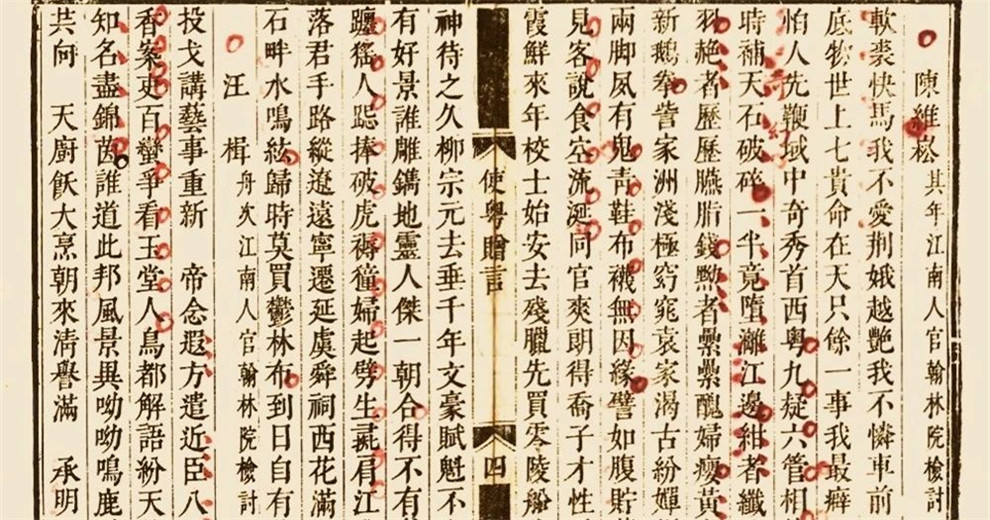 陳維崧其年江南人官翰林院檢討
軟裘快馬我不愛荆娥越艷我不憐車前
底物世上七貴命在天只餘一事我最癖
怕人先鞭域中奇秀首西粵九嶷六管相
時補天石破碎一半竟墮灕江邊紺者纖
羽赩者歷歷臙脂錢黝者纍纍醜婦癭黃
新鵝拳訾家洲淺極窈窕袁家渴古紛嬋
兩脚夙有鬼青鞋布襪無因緣譬如腹貯
見客說食空流涎同官爽朗得喬子才性
霞鮮來年校士始安去殘臘先買零陵船
使粵贈言 四
神待之久柳宗元去垂千年文豪賦魁不
有好景誰雕鐫地靈人傑一朝合得不有
躔猺人跽捧破虎禱獞婦起劈生彘肩江
落君手路縱遼遠寧遷延虞舜祠西花滿
石畔水鳴絃歸時莫買鬱林布到日自有
汪楫舟次江南人官翰林院檢討
投戈講藝事重新 帝念遐方遣近臣八
香案吏百蠻爭看玉堂人鳥都解語紛天
知名盡錦茵誰道此邦風景異呦呦鳴鹿
共向 天廚飫大烹朝來清譽滿 承明